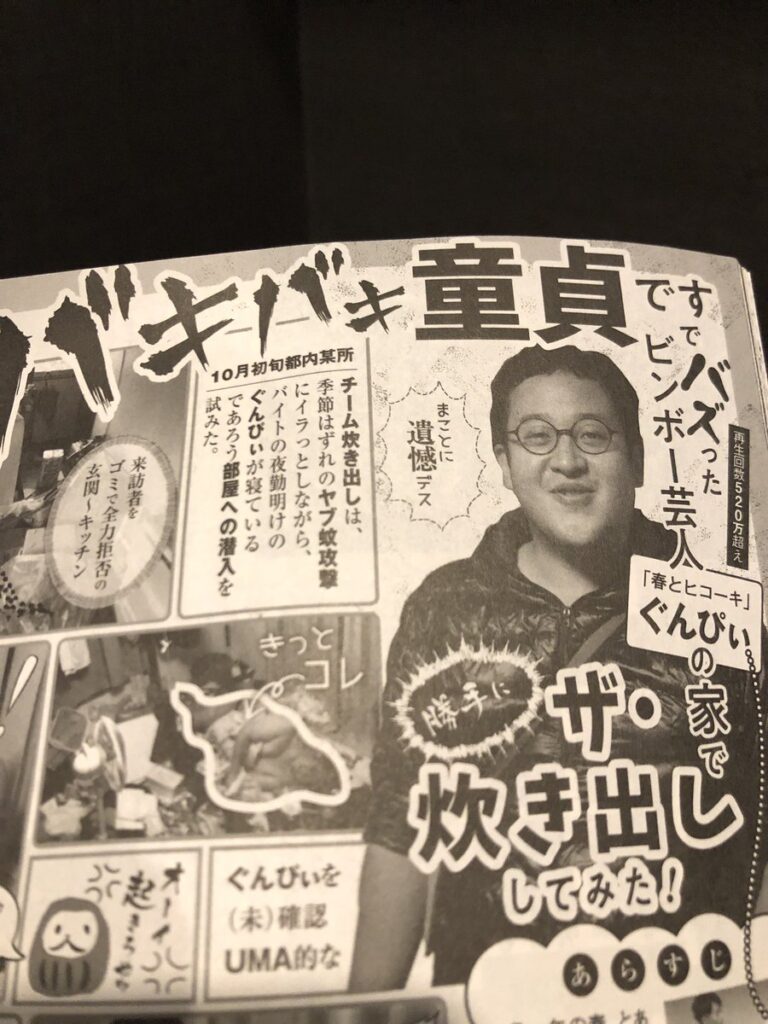 バキバキ童貞
すでにバズった
でビンボー芸人
再生回数520万超え
「春とヒコーキ」
ぐんぴぃの家で
勝手に
ザ・
炊き出し
してみた!
まことに
遺憾デス
10月初旬都内某所
チーム炊き出しは、
季節はずれのヤブ蚊攻撃
にイラっとしながら、
バイトの夜勤明けの
ぐんぴぃが寝ている
であろう部屋への潜入を
試みた。
来訪者を
ゴミで全力拒否の
玄関〜キッチン
ぐんぴぃを
(未)確認
UMA的な
オーイ
あらすじ